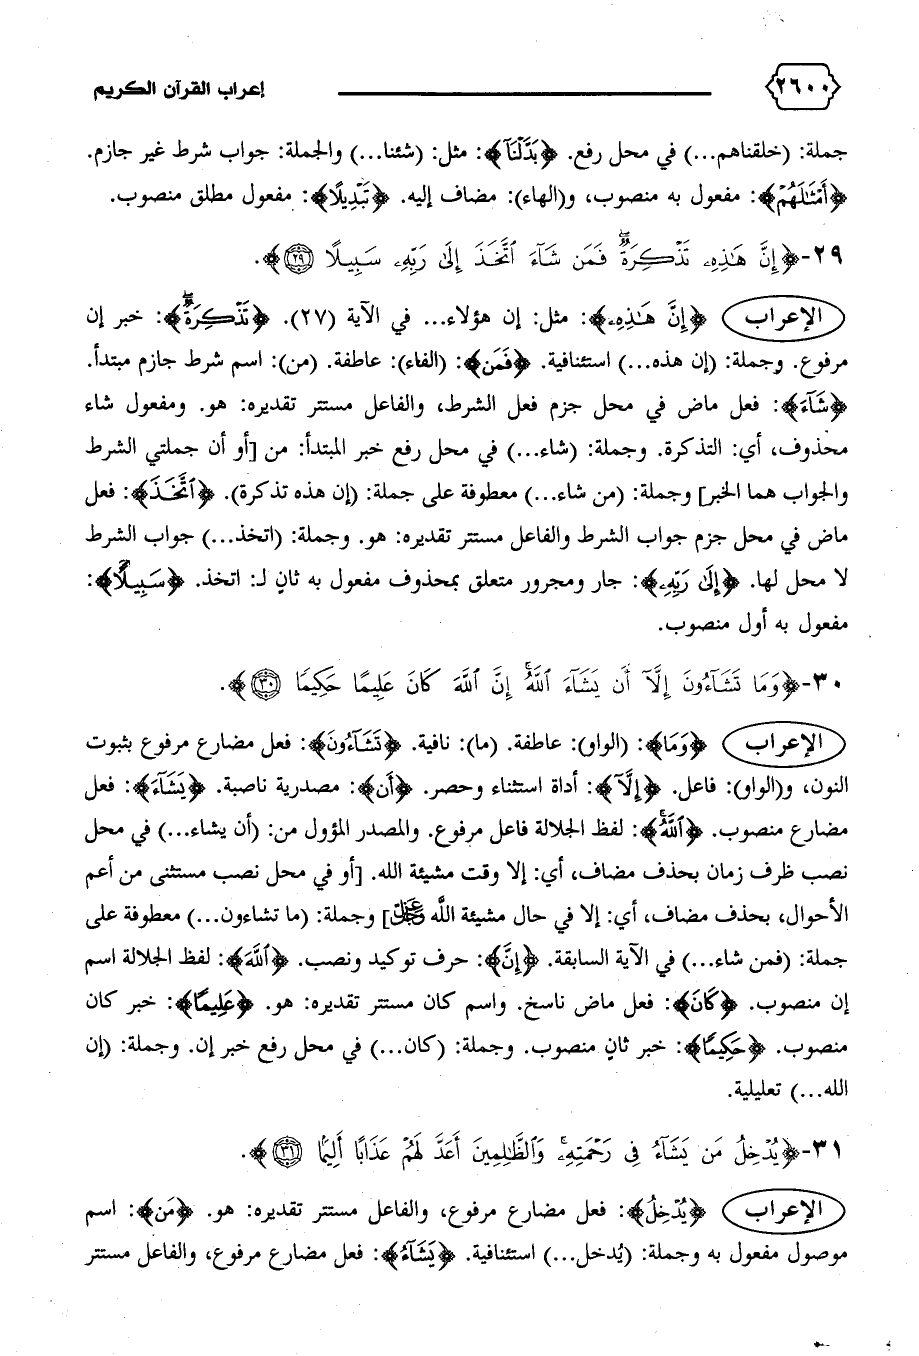 ٢٦٠٠ إعراب القرآن الكريم
جملة: (خلقناهم...) في محل رفع. ﴿بَدَّلْنَآ﴾: مثل: (شئنا...) والجملة: جواب شرط غير جازم.
﴿أَمْثَٰلَهُمْ﴾: مفعول به منصوب، و(الهاء): مضاف إليه. ﴿تَبْدِيلًا﴾: مفعول مطلق منصوب.
٢٩-﴿إِنَّ هَٰذِهِۦ تَذْكِرَةٌ ۖ فَمَن شَآءَ ٱتَّخَذَ إِلَىٰ رَبِّهِۦ سَبِيلًا ۝٢٩﴾.
الإعراب ﴿إِنَّ هَٰذِهِۦ﴾: مثل: إن هؤلاء... في الآية (٢٧). ﴿تَذْكِرَةٌ ۖ﴾: خبر إن
مرفوع. وجملة: (إن هذه...) استئنافية. ﴿فَمَن﴾: (الفاء): عاطفة. (من): اسم شرط جازم مبتدأ.
﴿شَآءَ﴾: فعل ماض في محل جزم فعل الشرط، والفاعل مستتر تقديره: هو. ومفعول شاء
محذوف، أي: التذكرة. وجملة: (شاء...) في محل رفع خبر المبتدأ: من [أو أن جملتي الشرط
والجواب هما الخبر] وجملة: (من شاء...) معطوفة على جملة: (إن هذه تذكرة). ﴿ٱتَّخَذَ﴾: فعل
ماض في محل جزم جواب الشرط والفاعل مستتر تقديره: هو. وجملة: (اتخذ...) جواب الشرط
لا محل لها. ﴿إِلَىٰ رَبِّهِۦ﴾: جار ومجرور متعلق بمحذوف مفعول به ثانٍ لـ: اتخذ. ﴿سَبِيلًا﴾:
مفعول به أول منصوب.
٣٠-﴿وَمَا تَشَآءُونَ إِلَّآ أَن يَشَآءَ ٱللَّهُ ۚ إِنَّ ٱللَّهَ كَانَ عَلِيمًا حَكِيمًا ۝٣٠﴾.
الإعراب ﴿وَمَا﴾: (الواو): عاطفة. (ما): نافية. ﴿تَشَآءُونَ﴾: فعل مضارع مرفوع بثبوت
النون، و(الواو): فاعل. ﴿إِلَّآ﴾: أداة استثناء وحصر. ﴿أَن﴾: مصدرية ناصبة. ﴿يَشَآءَ﴾: فعل
مضارع منصوب. ﴿ٱللَّهُ ۚ﴾: لفظ الجلالة فاعل مرفوع. والمصدر المؤول من: (أن يشاء...) في محل
نصب ظرف زمان بحذف مضاف، أي: إلا وقت مشيئة الله. [أو في محل نصب مستثنى من أعم
الأحوال، بحذف مضاف، أي: إلا في حال مشيئة اللَّه ﷿] وجملة: (ما تشاءون...) معطوفة على
جملة: (فمن شاء...) في الآية السابقة. ﴿إِنَّ﴾: حرف توكيد ونصب. ﴿ٱللَّهَ﴾: لفظ الجلالة اسم
إن منصوب. ﴿كَانَ﴾: فعل ماض ناسخ. واسم كان مستتر تقديره: هو. ﴿عَلِيمًا﴾: خبر كان
منصوب. ﴿حَكِيمًا﴾: خبر ثانٍ منصوب. وجملة: (كان...) في محل رفع خبر إن. وجملة: (إن
الله...) تعليلية.
٣١-﴿يُدْخِلُ مَن يَشَآءُ فِى رَحْمَتِهِۦ ۚ وَٱلظَّٰلِمِينَ أَعَدَّ لَهُمْ عَذَابًا أَلِيمًۢا ۝٣١﴾.
الإعراب ﴿يُدْخِلُ﴾: فعل مضارع مرفوع، والفاعل مستتر تقديره: هو. ﴿مَن﴾: اسم
موصول مفعول به وجملة: (يُدخل...) استئنافية. ﴿يَشَآءُ﴾: فعل مضارع مرفوع، والفاعل مستتر